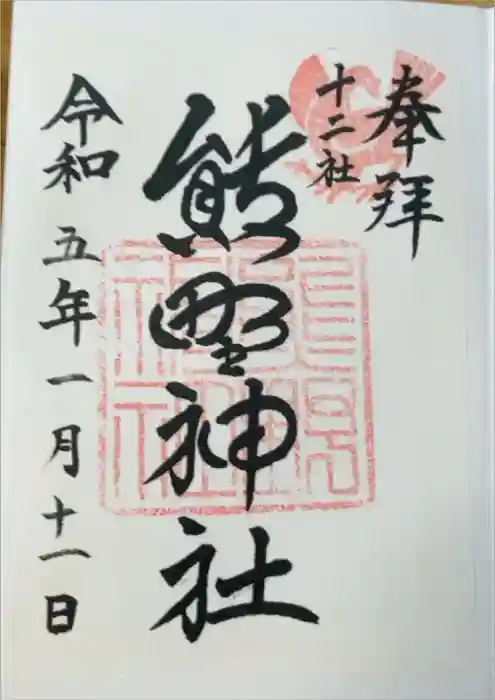 奉拝
十二社
熊野神社
令和五年一月十一日